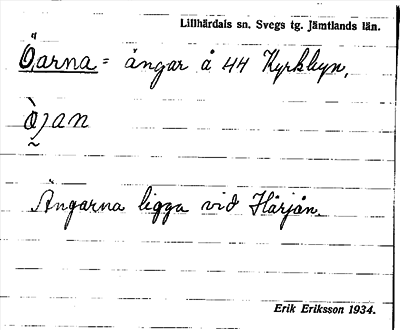 Lillhärdals sn. Svegs tg. Jämtlands län.
Öarna = ängar å 44 Kyrkbyn,
Ängarna ligga vid Härjån.
Erik Eriksson 1934.